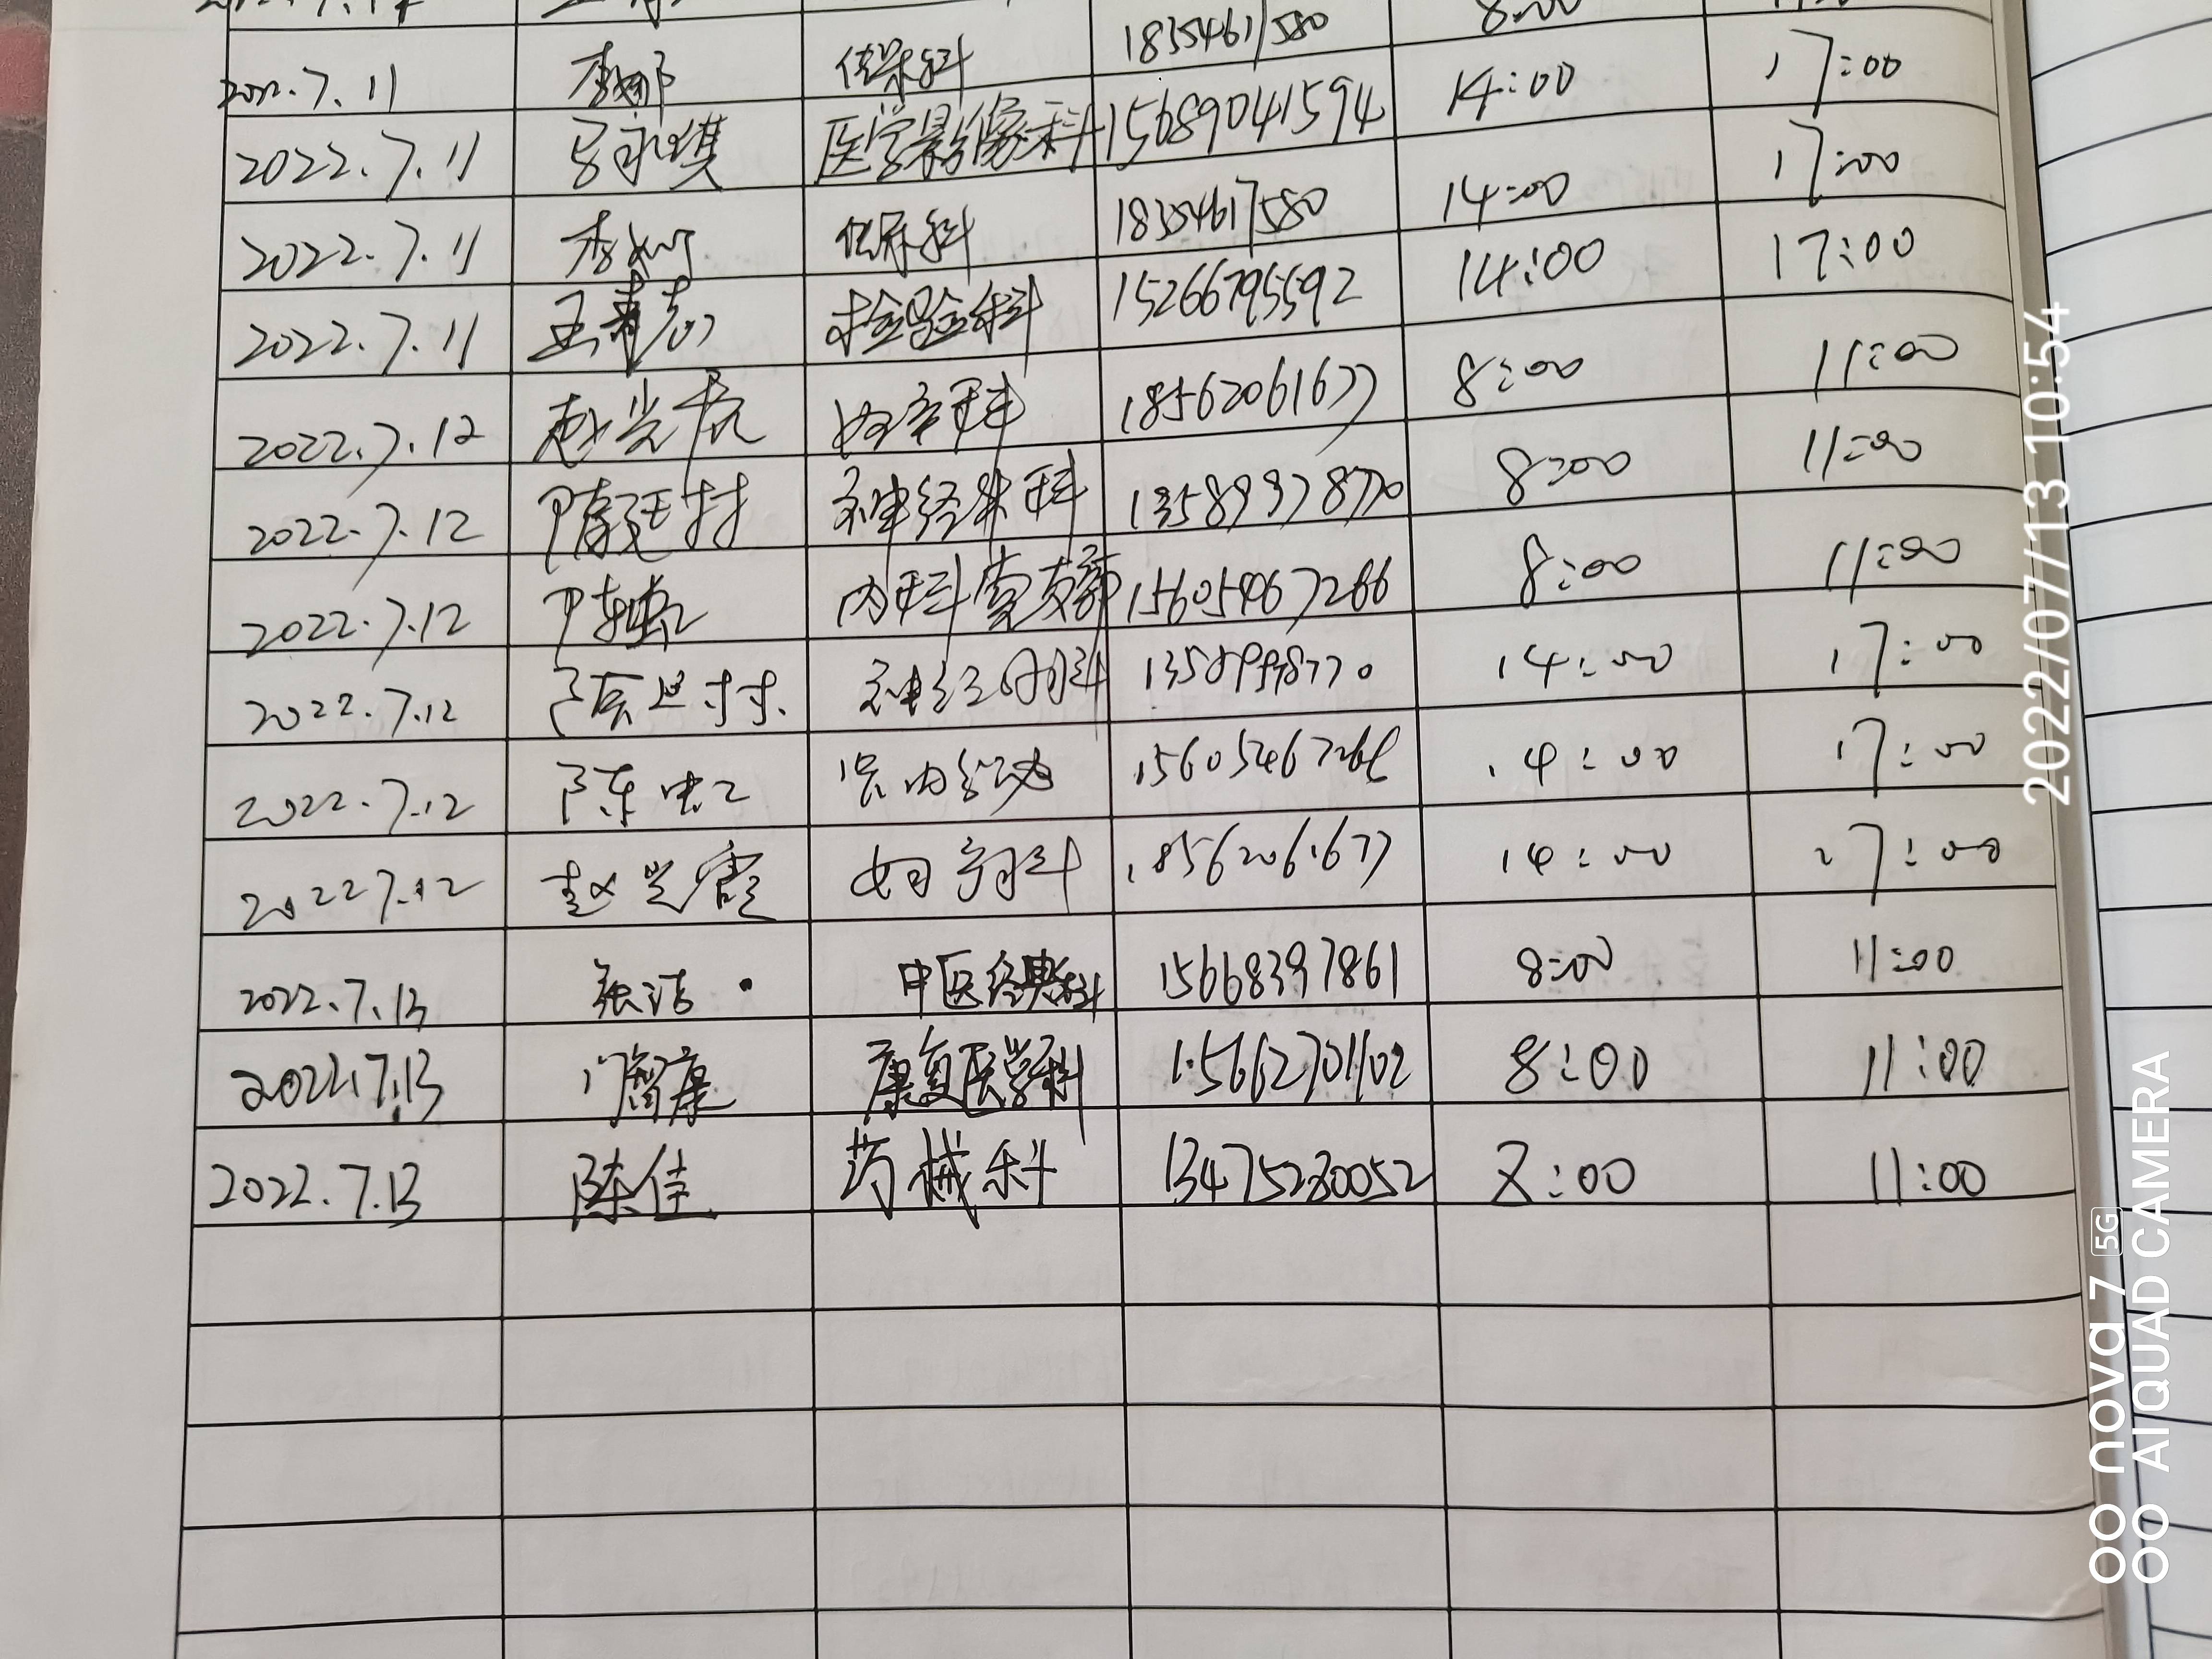 2022.7.11 李娜 保健科 18354617580 8:00
2022.7.11 马永琪 医学影像科 15689041594 14:00 17:00
2022.7.11 李娜 保健科 18354617580 14:00 17:00
2022.7.11 检验科 15266795592 14:00 17:00
2022.7.12 赵兰霞 妇产科 18562061677 8:00 11:00
2022.7.12 神经外科 13589978770 8:00 11:00
2022.7.12 陈忠 内科 15605467266 8:00 11:00
2022.7.12 神经 14:00 17:00
2022.7.12 陈忠 15605467266 14:00 17:00
2022 7.12 赵兰霞 妇产科 18562061677 14:00 17:00
2022.7.13 张洁 中医经典科 15668397861 8:00 11:00
2022.7.13 门智康 康复医学科 15662701102 8:00 11:00
2022.7.13 陈佳 药械科 13475230052 8:00 11:00
2022/07/13 10:54
nova 7 5G
AI QUAD CAMERA